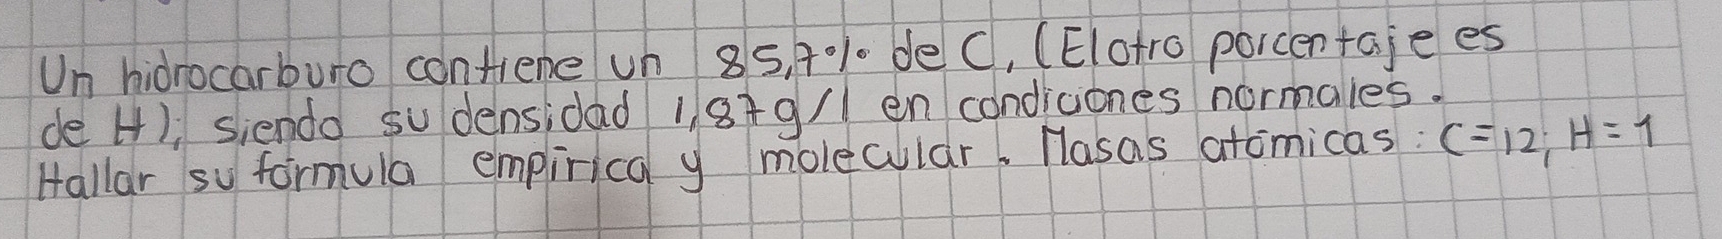 Un hidrocarburo contiene un 85,7% de C, (El otro porcentaje es
de H); siendo su densidad 1,87g/l en condiciones normales.
Hallar su fórmula empírica y molecular. Masas atómicas: C=12; H=1